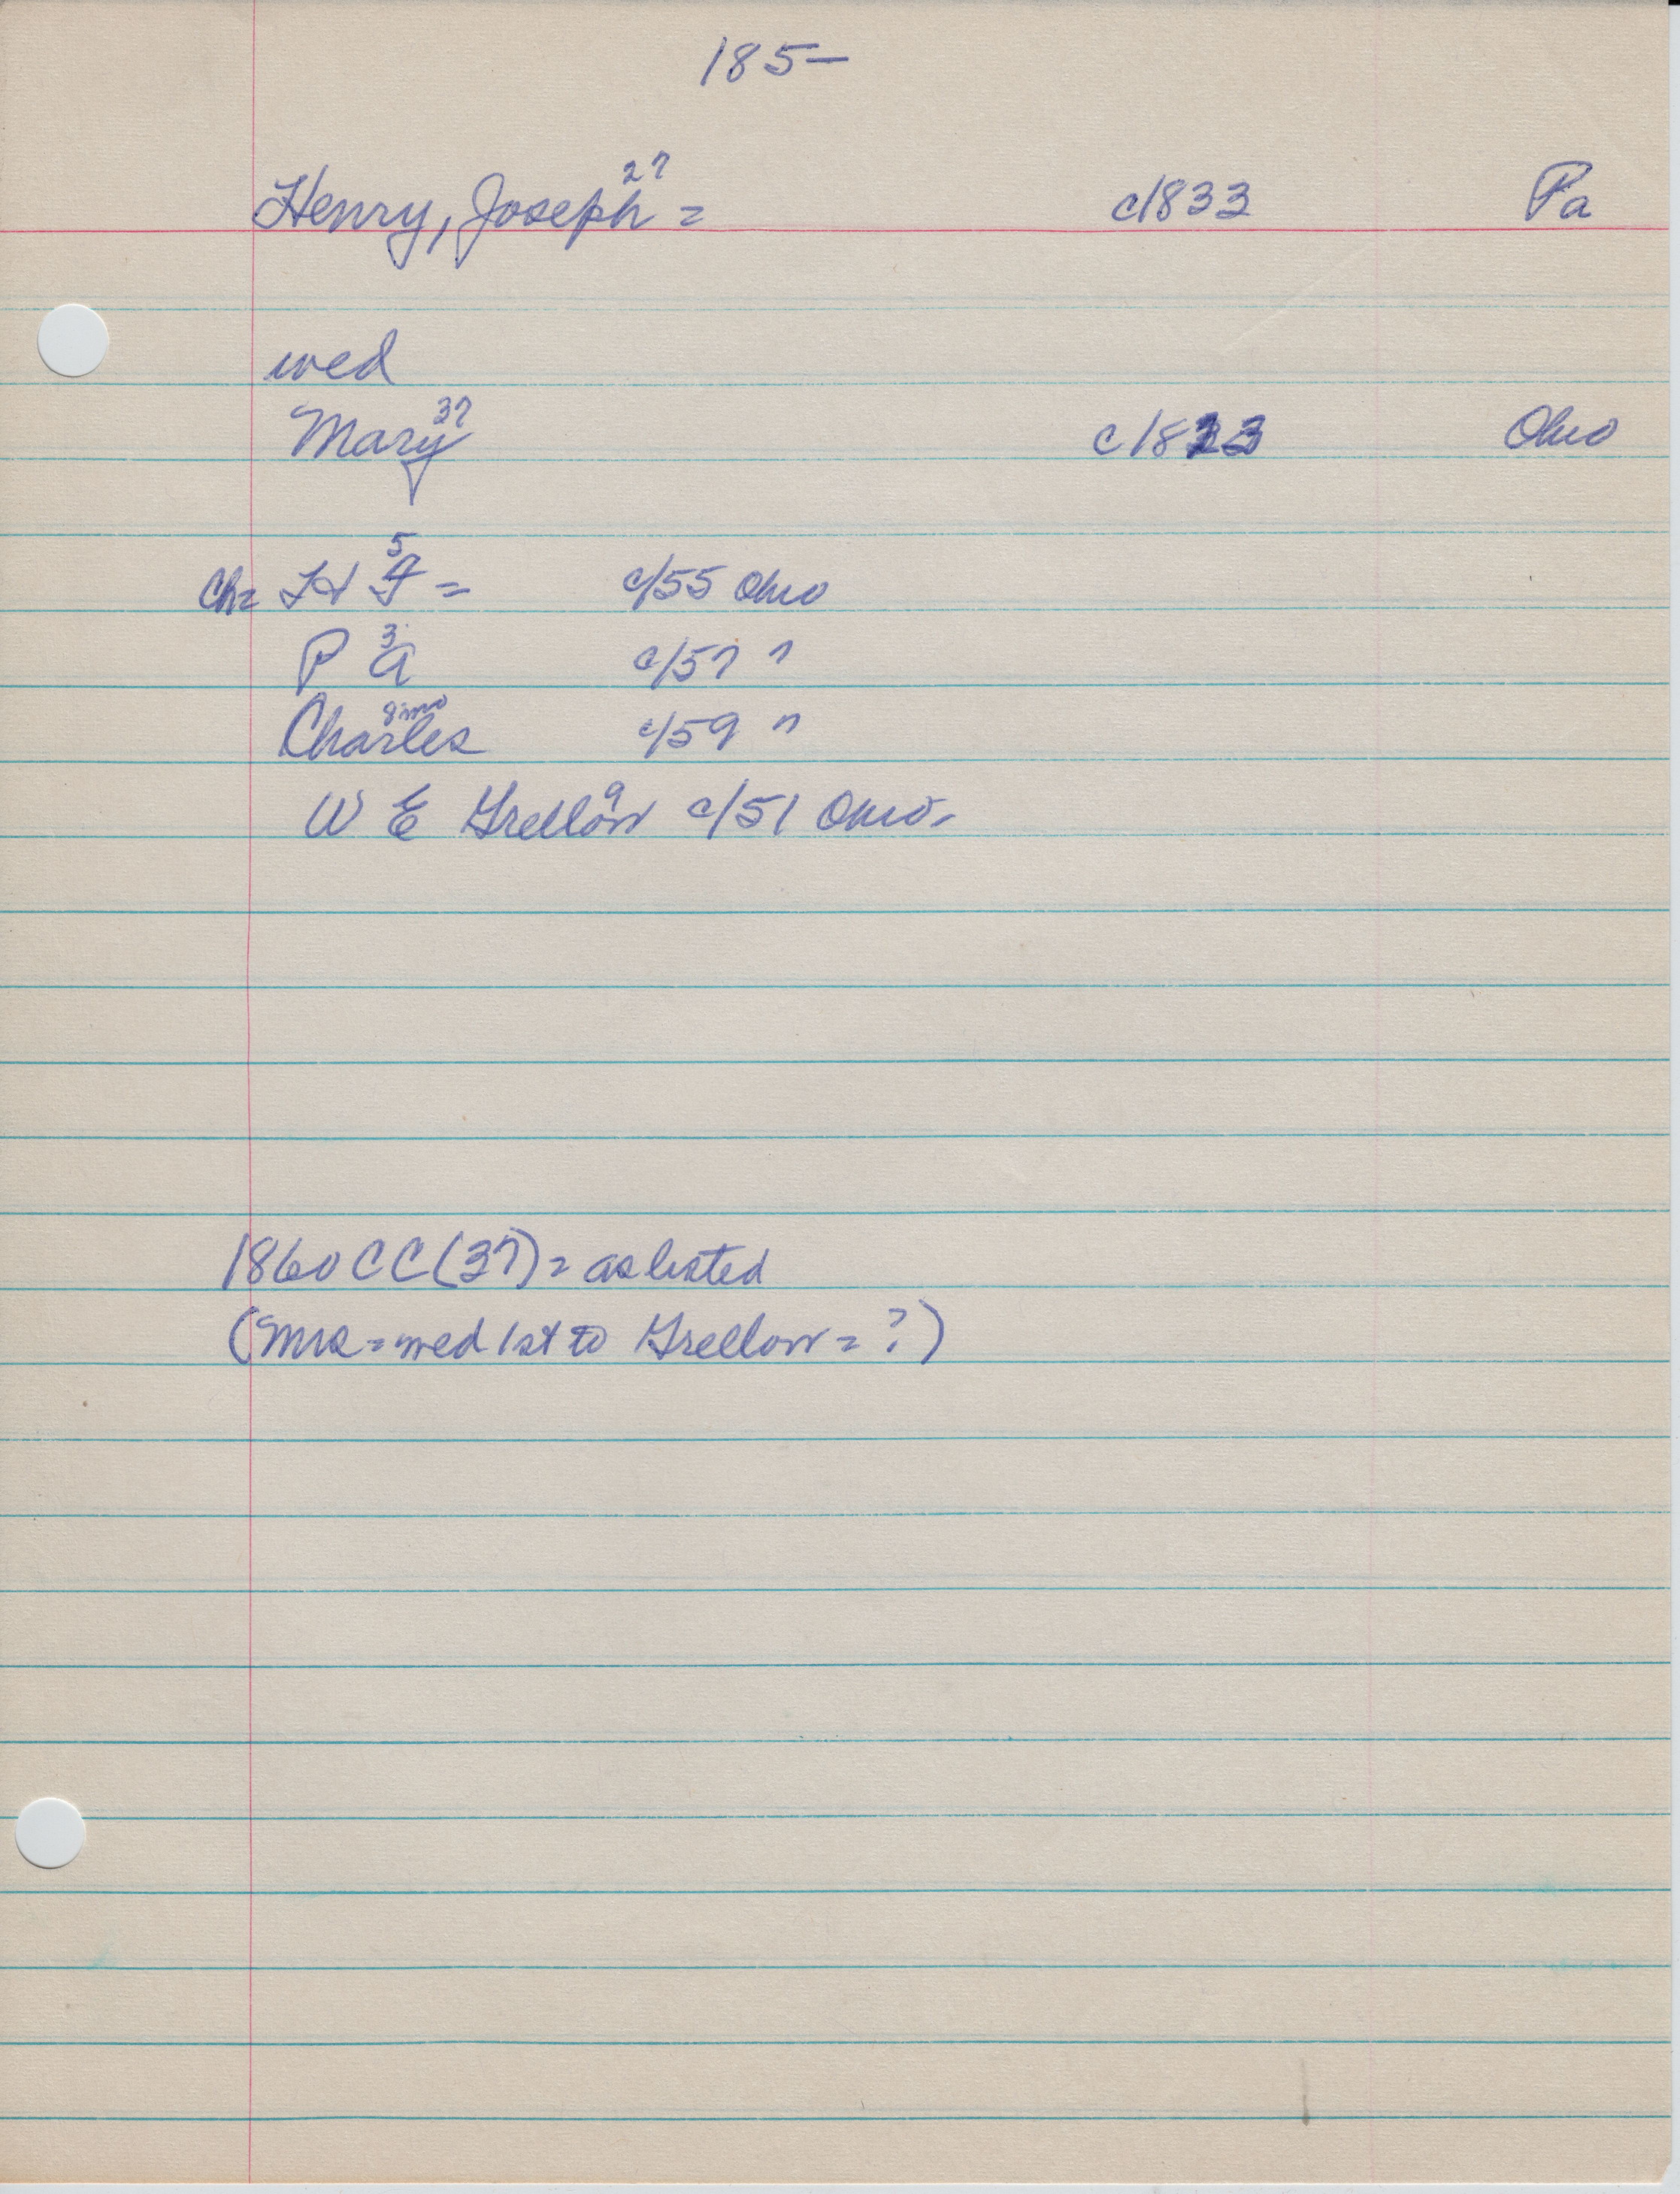 185-
Henry, Joseph 27 = c/833 Pa
wed
Mary 37 c/823 Ohio
Ch= H 5 = c/55 Ohio
P A 3 c/57 "
Charles 9mo c/59 "
W E Grellow 9 c/51 Ohio-
1860 CC (37) = as listed
(Mrs = wed 1st to Grellow = ?)